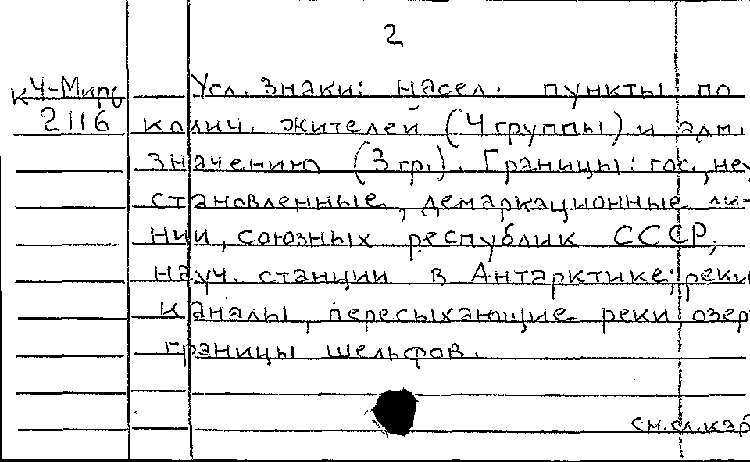 2
К4-Мирс Усл. знаки: насел. пункты по
2116 колич. жителей (4 группы) и адм.
значению (3 гр.). Границы: гос., неу
становленные, демаркационные ли-
нии, союзных республик СССР,
науч. станции в Антарктике; реки
каналы, пересыхающие реки озер
границы шельфов.
см.сл.кар